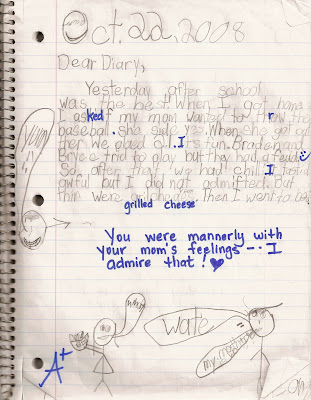 Oct. 22, 2008
Dear Diary,
Yesterday after school
was the best. When I got home
I asked if my mom wanted to
baseball. she side yes. When she got
ther we plaed I Braden and
Bryce trid to play but they had a feud.
So after that, we had chili I tast
awful but I did not admitted. But
thin were Then I went to bed
grilled cheese
You were mannerly with
your mom's feelings -- I
admire that!
wate
my
A+